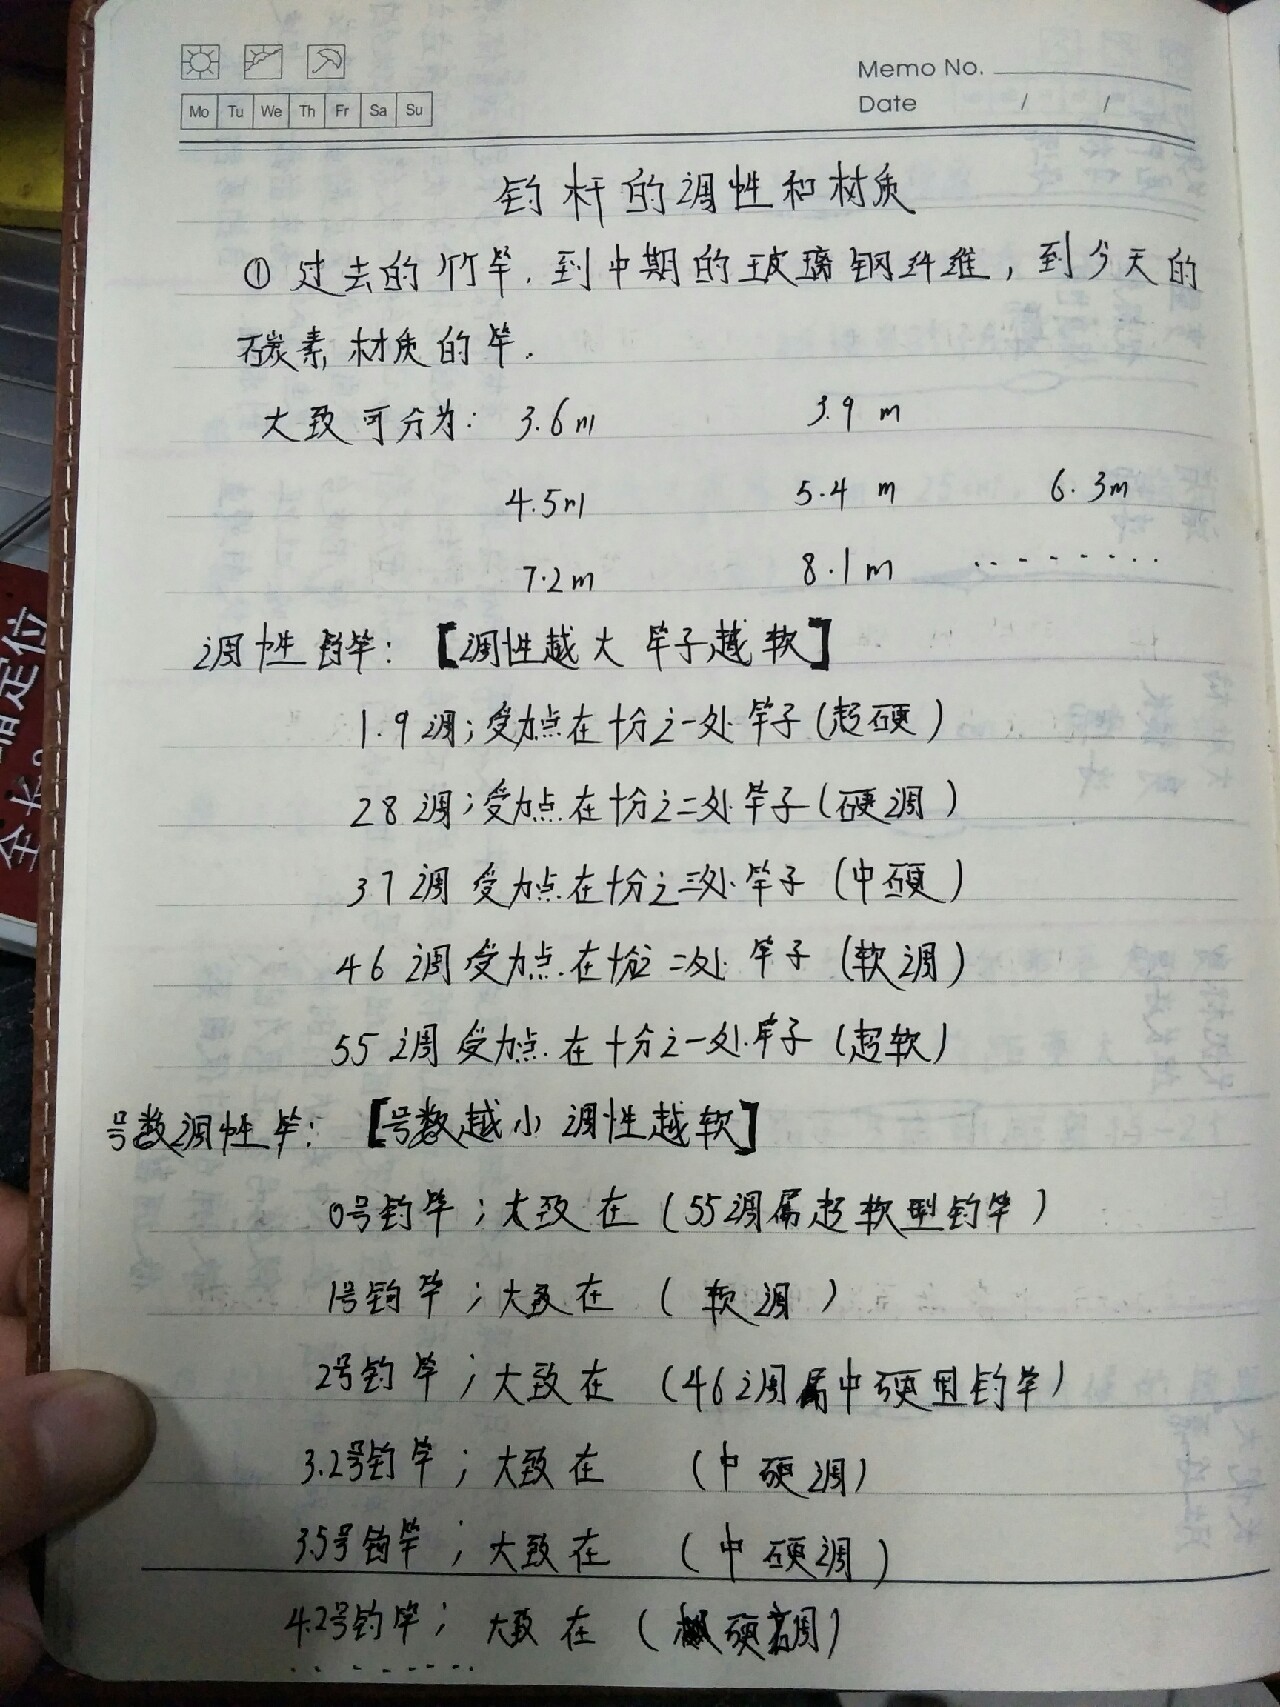 Memo No.
Mo Tu We Th Fr Sa Su
Date / /
钓杆的调性和材质
① 过去的竹竿.到中期的玻璃钢纤维，到今天的
碳素材质的竿.
大致可分为: 3.6m 3.9m
4.5m 5.4m 6.3m
7.2m 8.1m ········
调性钓竿:【调性越大竿子越软】
1.9调;受力点在十分之一处竿子(超硬)
28调;受力点在十分之二处竿子(硬调)
37调 受力点在十分之三处竿子(中硬)
46调 受力点在十分之二处竿子(软调)
55调 受力点在十分之一处竿子(超软)
号数调性竿:【号数越小调性越软】
0号钓竿;大致在(55调属超软型钓竿)
1号钓竿;大致在(软调)
2号钓竿;大致在(46调属中硬型钓竿)
3.2号钓竿;大致在(中硬调)
3.5号钓竿;大致在(中硬调)
4.2号钓竿;大致在(硬调)
········
定位
全长。